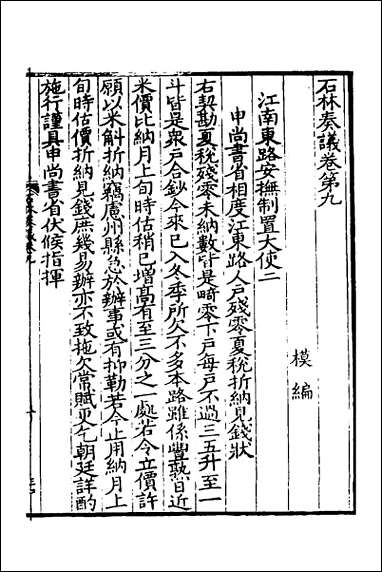 石林奏議卷第九
模編
江南東路安撫制置大使二
申尚書省相度江東路人戶殘零夏稅折納見錢狀
右契勘夏稅殘零未納數皆是畸零下戶每戶不過三五升至一
斗皆是衆戶合鈔今來已入冬季所欠不多本路雖係豐熟昔近
米價比納月上旬時估稍已增髙有至三分之一處若令立價許
願以米斛折納竊慮州縣急於辦事或有抑勒若今止用納月上
旬時估價折納見錢庶幾易辦亦不致拖欠常賦更乞朝廷詳酌
施行謹具申尚書省伏候指揮